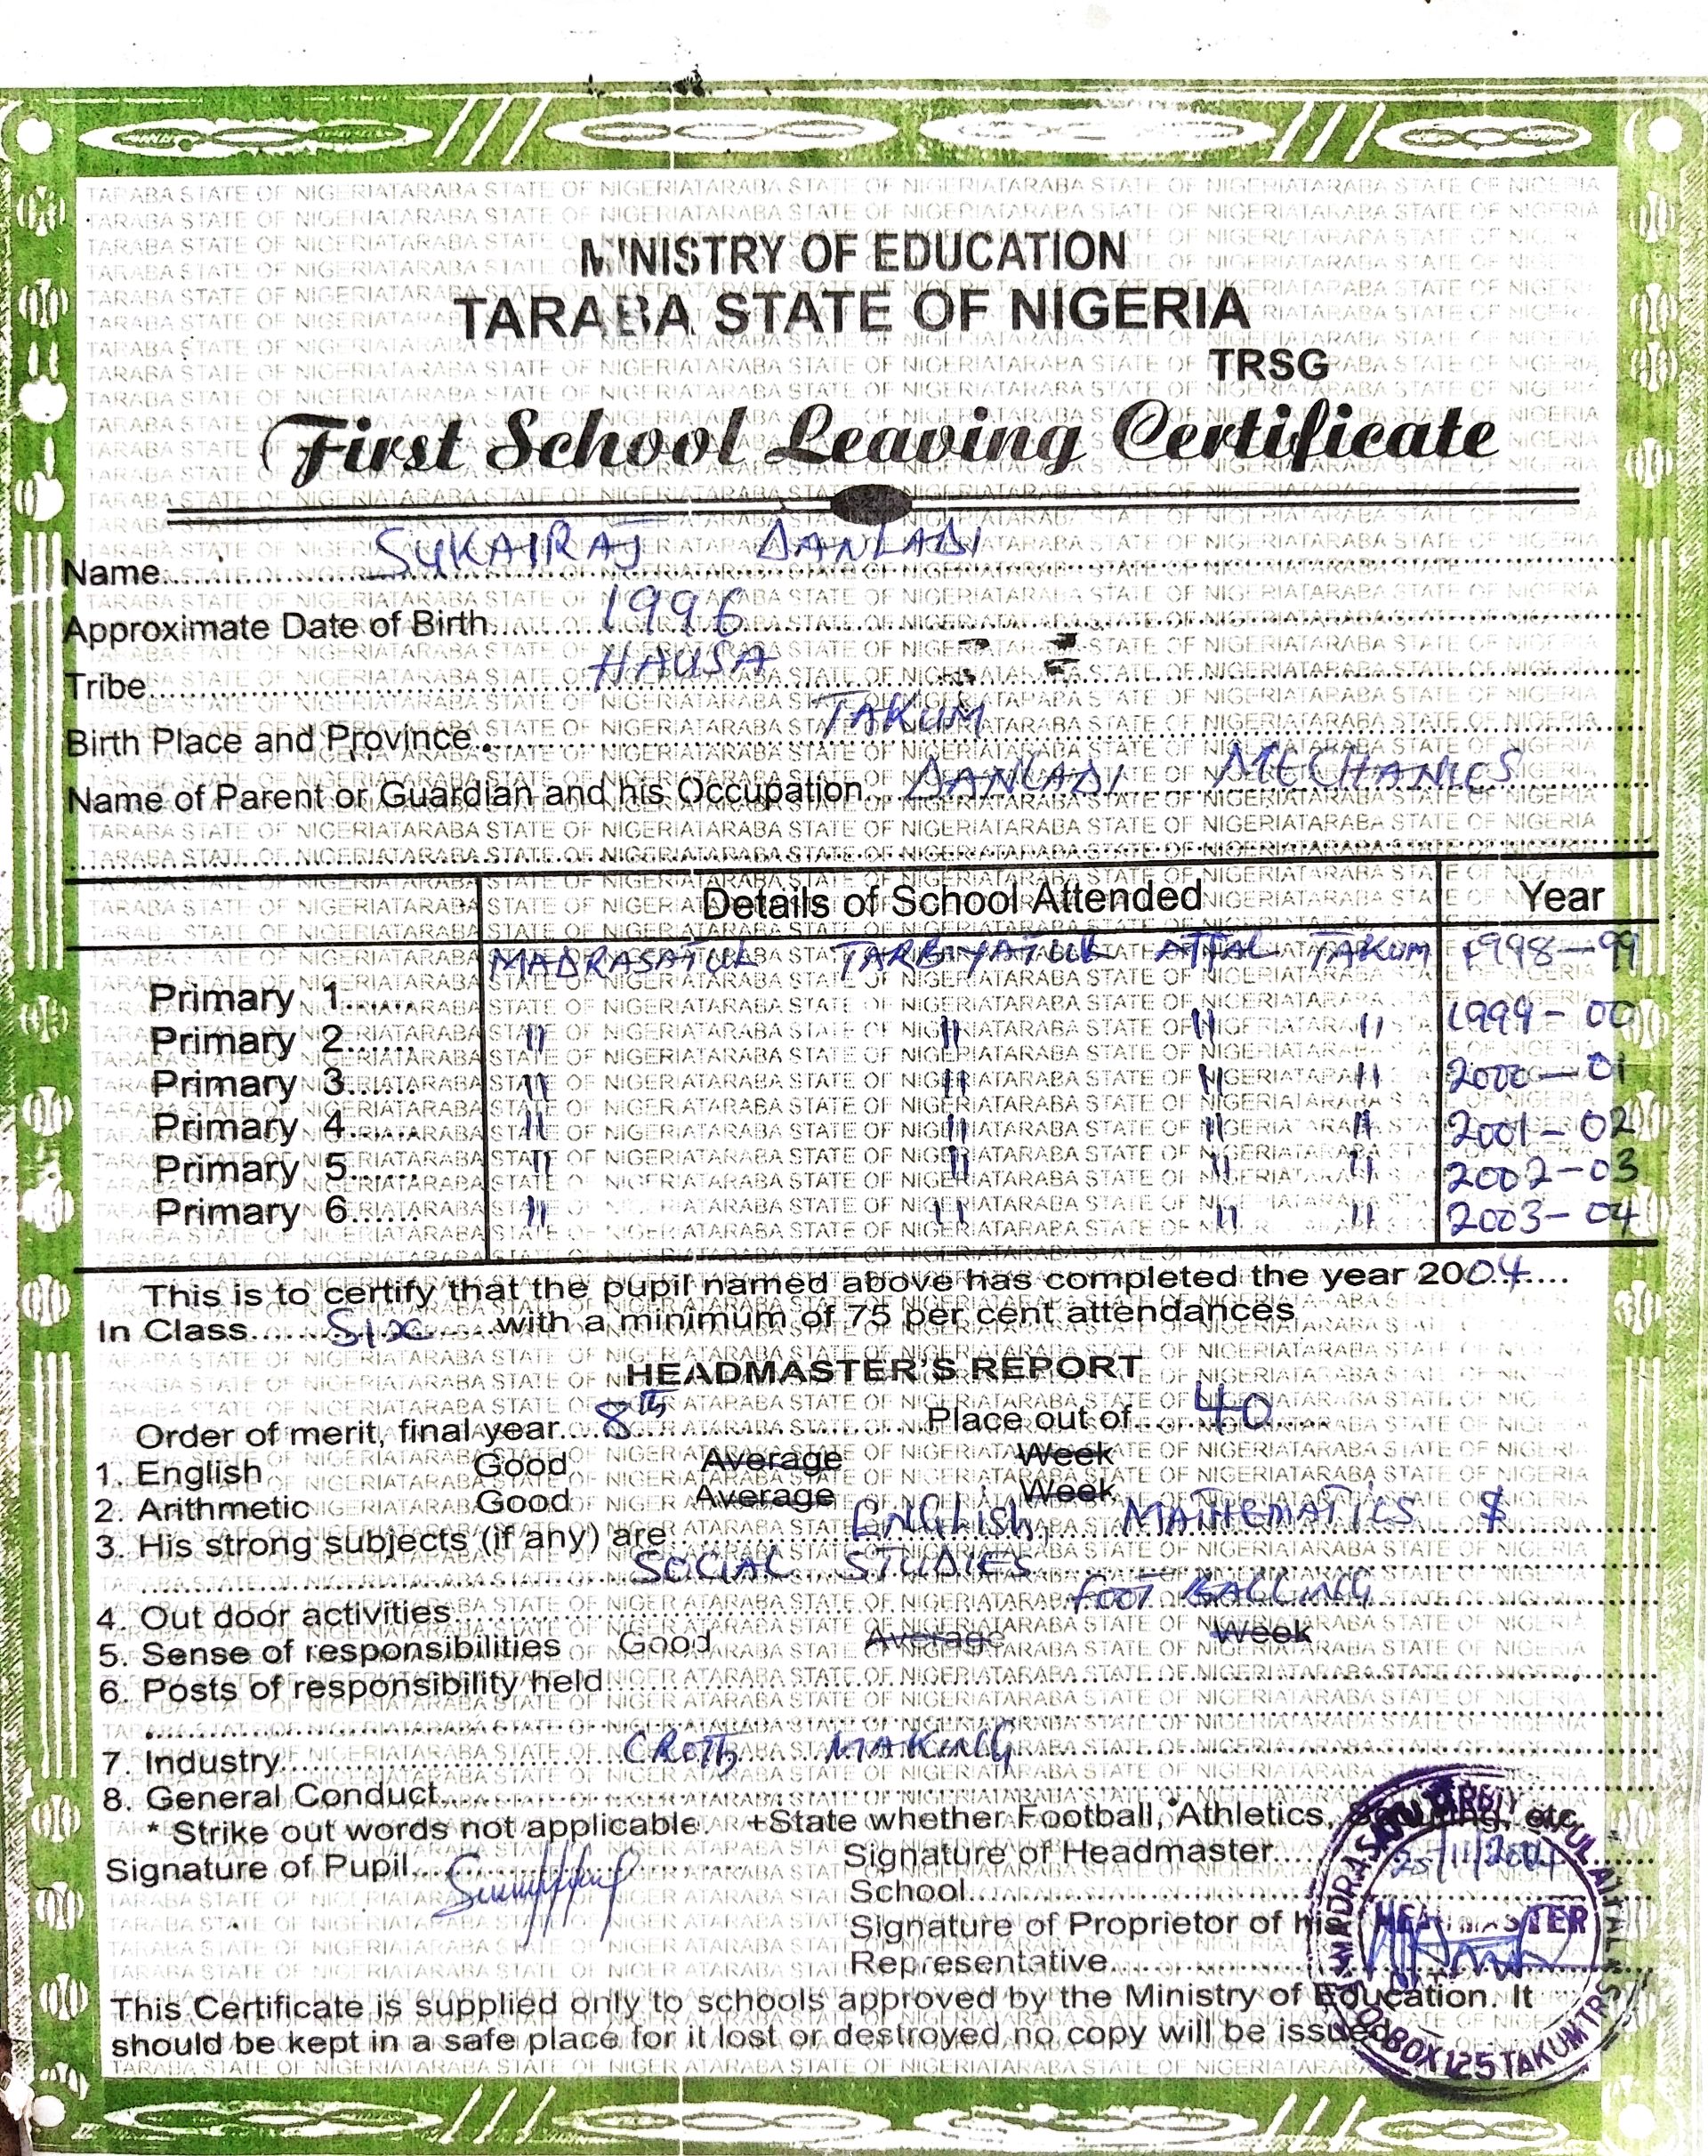 MINISTRY OF EDUCATION
TARABA STATE OF NIGERIA
TRSG
First School Leaving Certificate
Name SUKAIRAJ DANLADI
Approximate Date of Birth 1996
Tribe HAUSA
Birth Place and Province TAKUM
Name of Parent or Guardian and his Occupation DANLADI MECHANICS
Details of School Attended Year
Primary 1 MADRASATUL TARBIYATUL TAKUM 1998-99
Primary 2 " " " " 1999-00
Primary 3 " " " " 2000-01
Primary 4 " " " " 2001-02
Primary 5 " " " " 2002-03
Primary 6 " " " " 2003-04
This is to certify that the pupil named above has completed the year 2004
In Class Six with a minimum of 75 per cent attendances
HEADMASTER'S REPORT
Order of merit, final year 8th Place out of 40
1. English Good Average Week
2. Arithmetic Good Average Week
3. His strong subjects (if any) are ENGLISH, MATHEMATICS $
SOCIAL STUDIES
4. Out door activities FOOT BALLING
5. Sense of responsibilities Good Average Week
6. Posts of responsibility held
7. Industry MAKING
8. General Conduct
* Strike out words not applicable. +State whether Football, Athletics, etc
Signature of Pupil
Signature of Headmaster 25/11/2004
School
Signature of Proprietor of his
Representative
HEADMASTER
This Certificate is supplied only to schools approved by the Ministry of Education. It
should be kept in a safe place for it lost or destroyed no copy will be issued
BOX 125 TAKUM